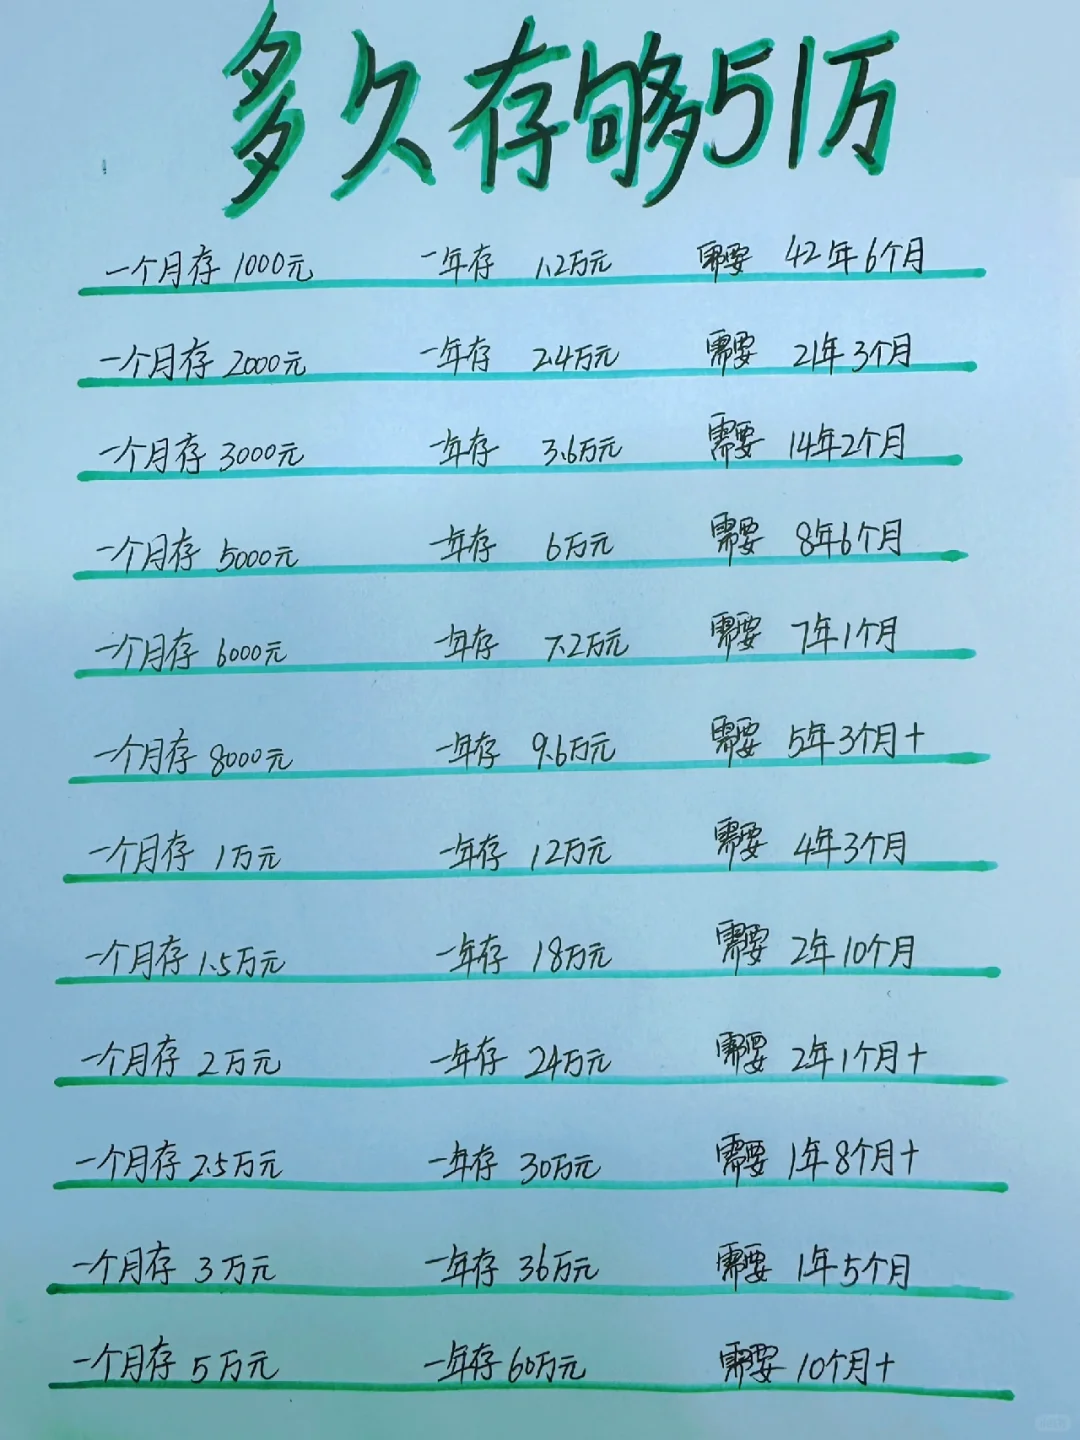 多久存够51万
一个月存 1000元 一年存 1.2万元 需要 42年6个月
一个月存 2000元 一年存 2.4万元 需要 21年3个月
一个月存 3000元 一年存 3.6万元 需要 14年2个月
一个月存 5000元 一年存 6万元 需要 8年6个月
一个月存 6000元 一年存 7.2万元 需要 7年1个月
一个月存 8000元 一年存 9.6万元 需要 5年3个月+
一个月存 1万元 一年存 12万元 需要 4年3个月
一个月存 1.5万元 一年存 18万元 需要 2年10个月
一个月存 2万元 一年存 24万元 需要 2年1个月+
一个月存 2.5万元 一年存 30万元 需要 1年8个月+
一个月存 3万元 一年存 36万元 需要 1年5个月
一个月存 5万元 一年存 60万元 需要 10个月+